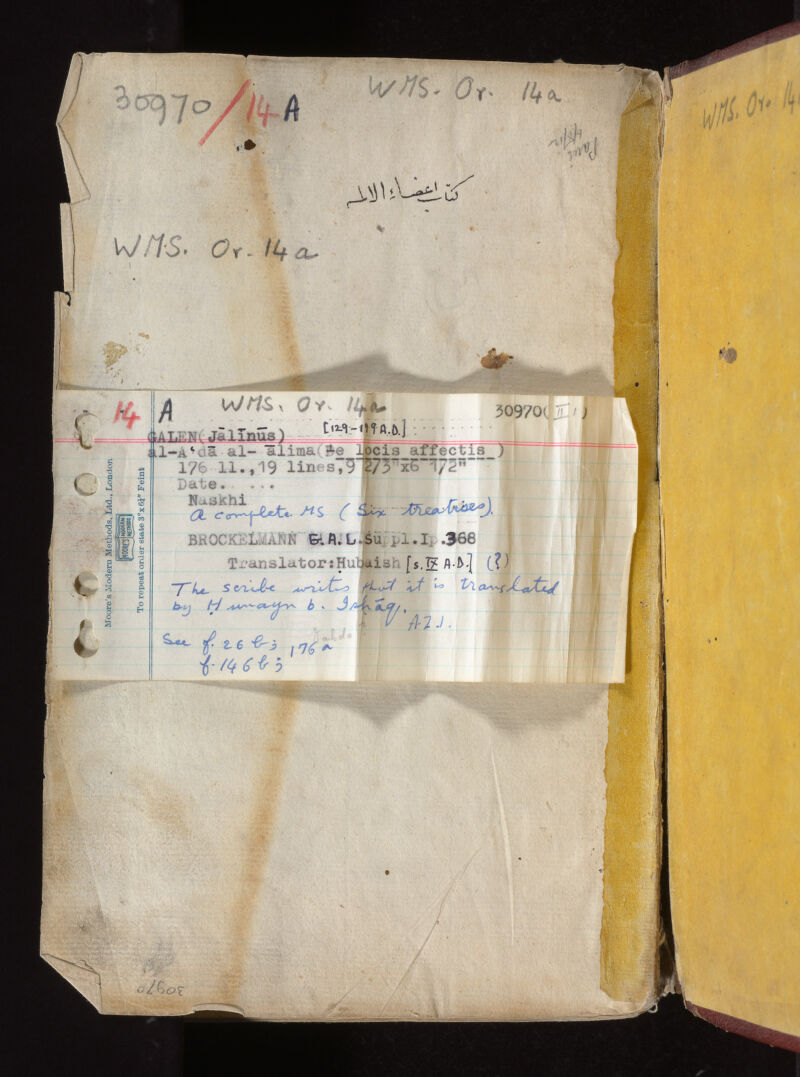 30970/14 A
WMS. Or. 14a
WMS. Or. 14
كتاب اعضاء الالمه
WMS. Or. 14a
14 A WMS. Or. 14a 30970(II1)
GALEN(Jālīnūs) [129-199 A.D.]
al-A'dā al- ālima(De locis affectis )
176 ll.,19 lines,9 2/3"x6 1/2"
Date. ...
Naskhi
A complete MS (Six treatises).
BROCKELMANN G.A.L. Suppl.I p.368
Translator:Hubaish [s. IX A.D.] (?)
The scribe writes that it is translated
by Ḥunayn b. Isḥāq.
A.Z.I.
See f. 26b; 176a
f. 146b;
Moore's Modern Methods, Ltd., London
To repeat order state 3"x6¼" Feint
30970